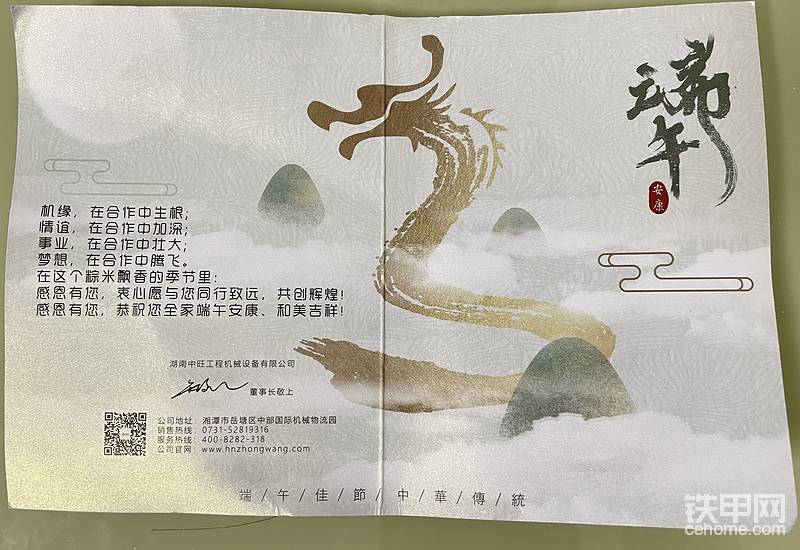 机缘，在合作中生根；
情谊，在合作中加深；
事业，在合作中壮大；
梦想，在合作中腾飞。
在这个粽米飘香的季节里：
感恩有您，衷心愿与您同行致远，共创辉煌！
感恩有您，恭祝您全家端午安康、和美吉祥！
湖南中旺工程机械设备有限公司
董事长敬上
公司地址：湘潭市岳塘区中部国际机械物流园
销售热线：0731-52819316
服务热线：400-8282-318
公司官网：www.hnzhongwang.com
端午
安康
端/午/佳/節/中/華/傳/統
铁甲网
cehome.com